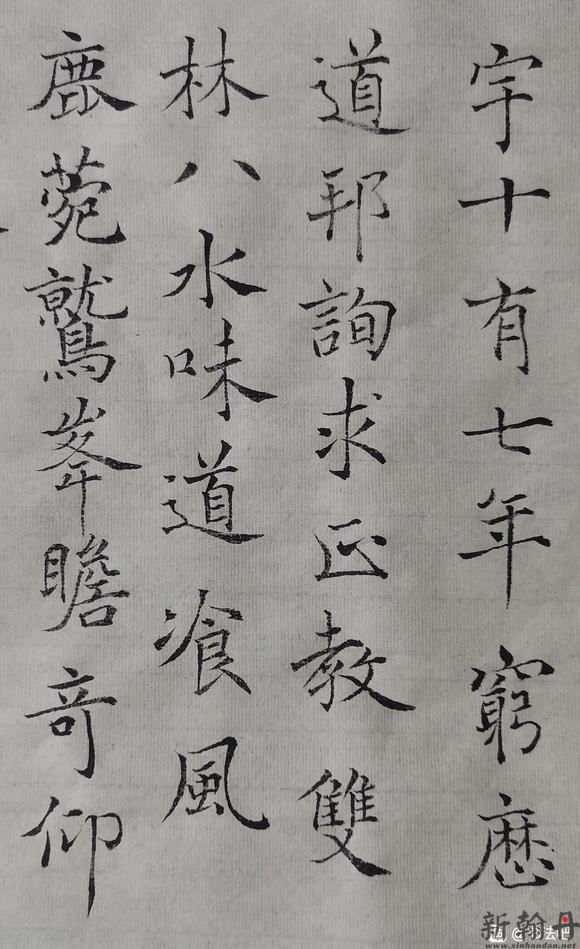 宇十有七年窮歷
道邦詢求正教雙
林八水味道飡風
鹿菀鷲峯瞻奇仰
新翰丹
www.xinhandan.